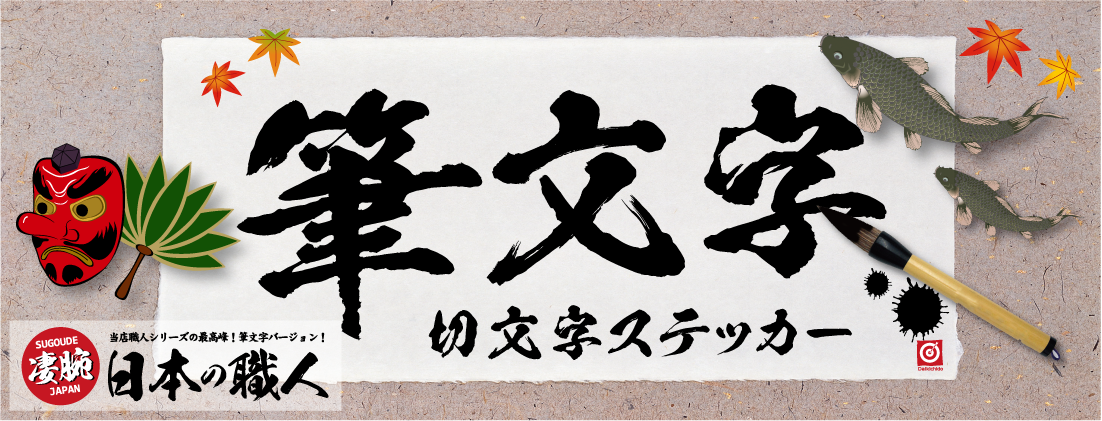 筆文字
切文字ステッカー
SUGOUDE
凄腕
JAPAN
当店職人シリーズの最高峰！筆文字バージョン！
日本の職人